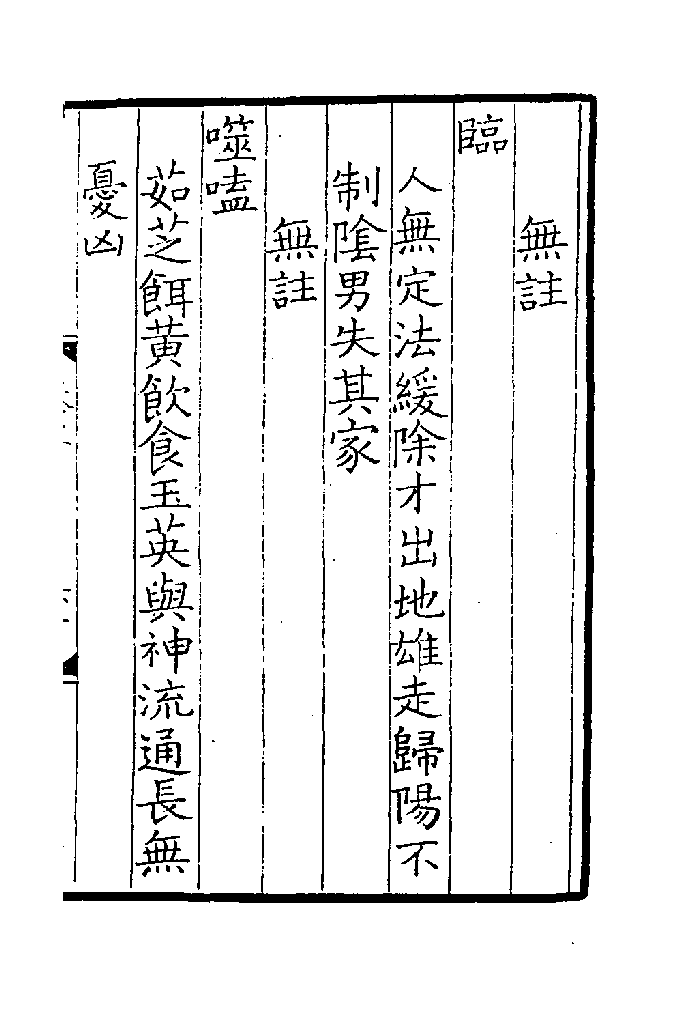 無註
臨
人無定法緩除才出地雄走歸陽不
制隂男失其家
無註
噬嗑
茹芝餌黃飲食玉英與神流通長無
憂凶